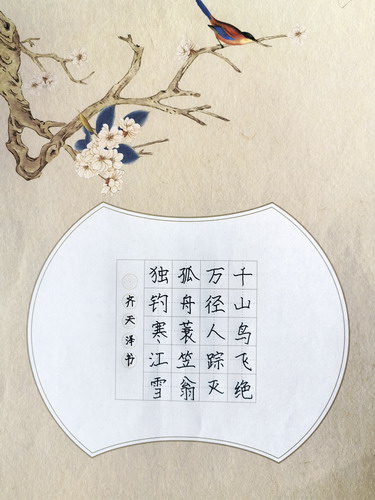 千山鸟飞绝
万径人踪灭
孤舟蓑笠翁
独钓寒江雪
齐天泽书